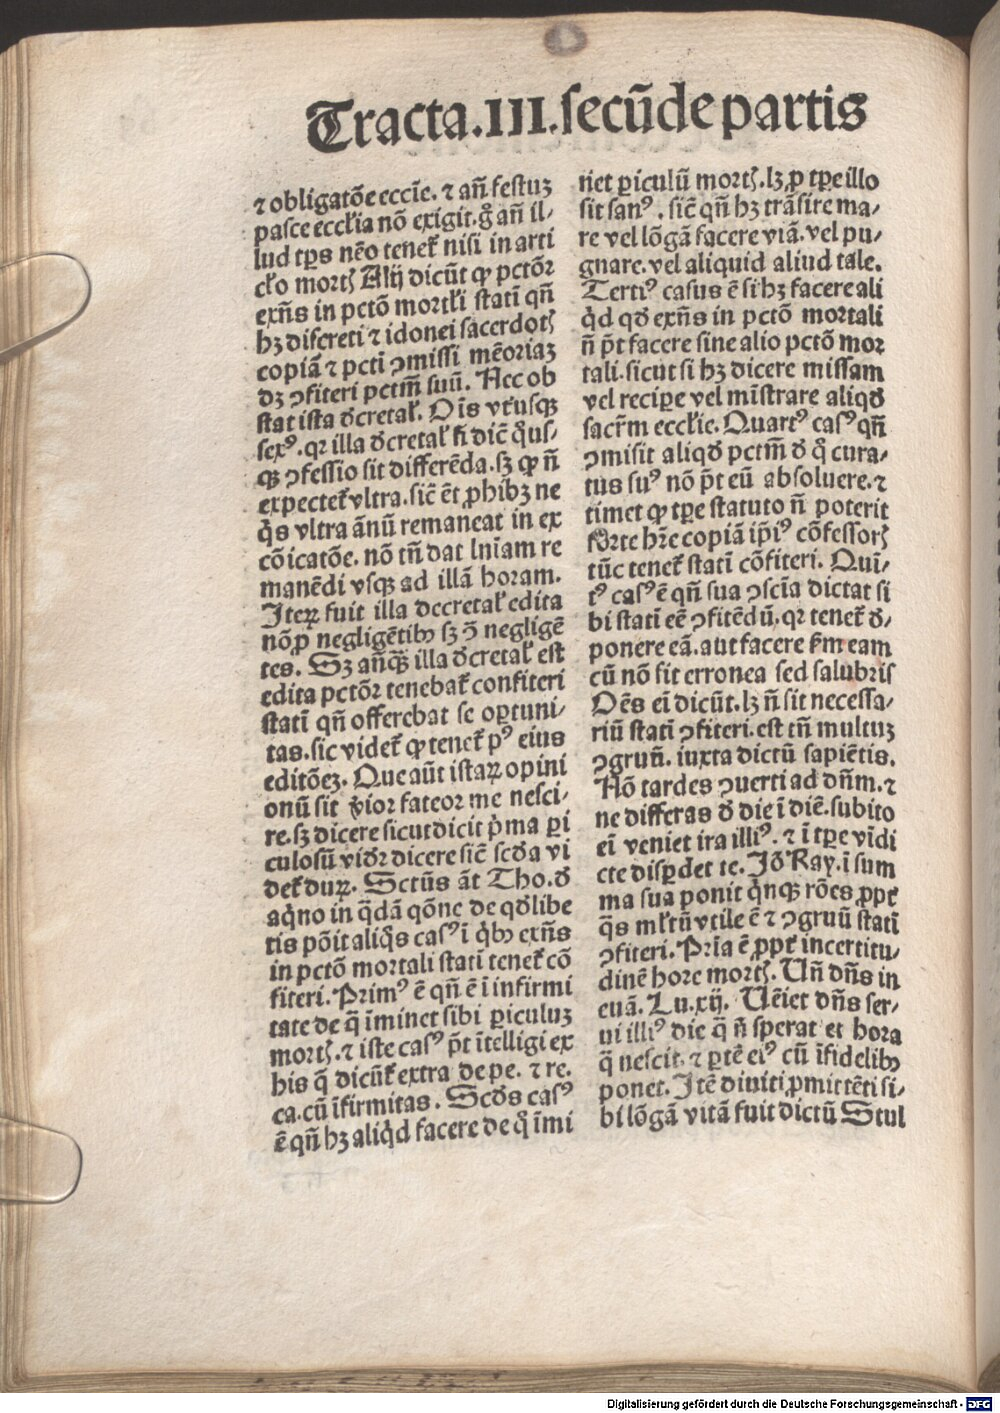 Tracta.III.secūde partis
⁊ obligatōe eccīe. ⁊ añ festuʒ
pasce eccłia nō exigit. gͦ añ il-
lud tp̄s nēo teneť nisi in arti
cło mortꝭ Alij dicūt ꝙ pctōr
exñs in pctō mortłi statī qñ
hʒ discreti ⁊ idonei sacerdotꝭ
copiā ⁊ pcti ꝯmissi mēoriaʒ
dʒ ꝯfiteri pctm̄ suū. Nec ob
stat ista đcretał. Oīs vťusqꝫ
sexꝰ. qꝛ illa đcretał ñ dic̄ qͥus-
qꝫ ꝯfessio sit differēda. sʒ ꝙ ñ
expecteť vltra. sic̄ ēt ꝓhibʒ ne
qͥs vltra ānū remaneat in ex
cōicatōe. nō tñ dat lnīam re
manēdi vsqꝫ ad illā horam.
Iteꝝ fuit illa decretał edita
nō ꝓ negligētibꝰ sʒ ꝯ̄ negligē
tes. Sʒ añqꝫ̄ illa đcretał est
edita pctōr tenebať confiteri
statī qñ offerebat se oꝑtuni-
tas. sic videť ꝙ teneť pꝰ eius
editōeʒ. Que aūt istaꝝ opini
onū sit v̓ior fateor me nesci-
re. sʒ dicere sicut dicit pͥma ꝑi
culosū viđr dicere sic̄ scđa vi
deť duꝝ. Sctūs āt Tho. đ
aqͥno in qͣ̄dā qōne de qđlibe
tis pōit aliqͥs casꝰ ī qͥbꝰ exñs
in pctō mortali statī teneť cō
fiteri. Primꝰ ē qñ ē ī infirmi
tate de qͣ īminet sibi ꝑiculuʒ
mortꝭ. ⁊ iste casꝰ p̄t ītelligi ex
his q̄ dicūť extra de pe. ⁊ re.
ca. cū īfirmitas. Scđs casꝰ
ē qñ hʒ aliqͥd facere de qͦ īmi
niet ꝑiculū mortꝭ. lʒ ꝓ tꝑe illo
sit sanꝰ. sic̄ qñ hʒ trāsire ma-
re vel lōgā facere viā. vel pu-
gnare. vel aliquid aliud tale.
Tertiꝰ casus ē si hʒ facere ali
qͥd qđ exñs in pctō mortali
ñ p̄t facere sine alio pctō mor
tali. sicut si hʒ dicere missam
vel recipere vel mīstrare aliqđ
sacr̄m eccłie. Quartꝰ casꝰ qñ
ꝯmisit aliqđ pctm̄ đ qͦ cura-
tus suꝰ nō p̄t eū absoluere. ⁊
timet ꝙ tꝑe statuto ñ poterit
forte hr̄e copiā ip̄iꝰ cōfessorꝭ
tūc teneť statī cōfiteri. Quī-
tꝰ casꝰ ē qñ sua ꝯscīa dictat si
bi statī eē ꝯfitēdū. qꝛ teneť đ-
ponere eā. aut facere ẜm eam
cū nō sit erronea sed salubris
Oēs eī dicūt. lʒ ñ sit necessa-
riū statī ꝯfiteri. est tñ multuʒ
ꝯgruñ. iuxta dictū sapiētis.
Nō tardes ꝯuerti ad dñm. ⁊
ne differas đ die ī diē. subito
eī veniet ira illiꝰ. ⁊ ī tꝑe vīdi
cte disꝑdet te. Jō Ray. ī sum
ma sua ponit qͥnqꝫ rōes ꝓpť
qͣs młtū vtile ē ⁊ ꝯgruū statī
ꝯfiteri. Prīa ē ꝓpť incertitu-
dinē hore mortꝭ. Uñ dñs in
euā. Lu. xij. Uēiet dñs ser-
ui illiꝰ die qͣ ñ sperat et hora
qͣ nescit. ⁊ ꝑtē eiꝰ cū īfidelibꝰ
ponet. Itē diuiti ꝓmittēti si-
bi lōgā vitā fuit dictū Stul
Digitalisierung gefördert durch die Deutsche Forschungsgemeinschaft - DFG